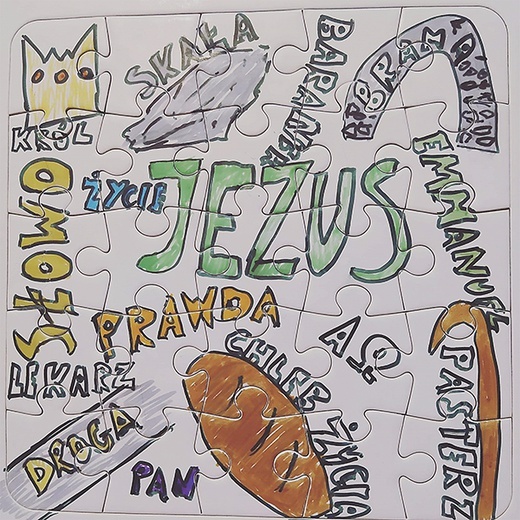 KRÓL
SKAŁA
BARANEK
BRAMA
SŁOWO
ŻYCIE
JEZUS
EMMANUEL
PRAWDA
ΑΩ
LEKARZ
CHLEB ŻYCIA
PASTERZ
DROGA
PAN